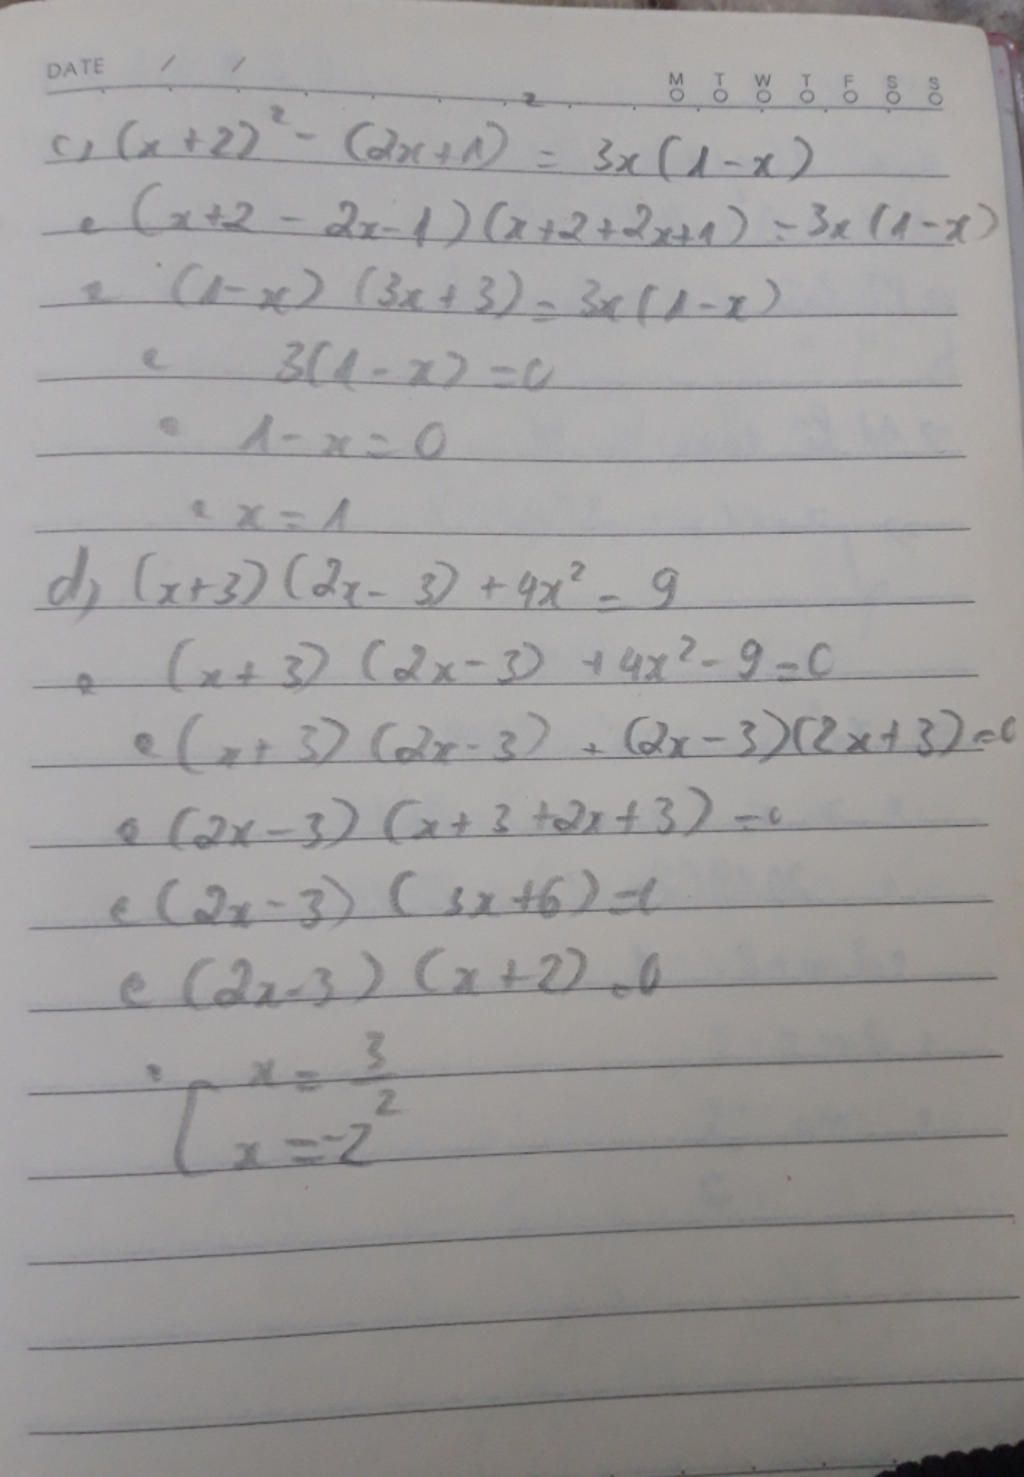 DATE / /
M T W T F S S
c, (x+2)² - (2x+1)² = 3x(1-x)
(x+2 - 2x-1)(x+2+2x+1) = 3x(1-x)
(1-x) (3x+3) = 3x(1-x)
3(1-x) = 0
1-x = 0
x = 1
d, (x+3)(2x-3) + 4x² = 9
(x+3) (2x-3) + 4x² - 9 = 0
(x+3) (2x-3) + (2x-3)(2x+3) = 0
(2x-3) (x+3+2x+3) = 0
(2x-3) (3x+6) =
(2x-3) (x+2) = 0
[ x = 3/2
x = -2